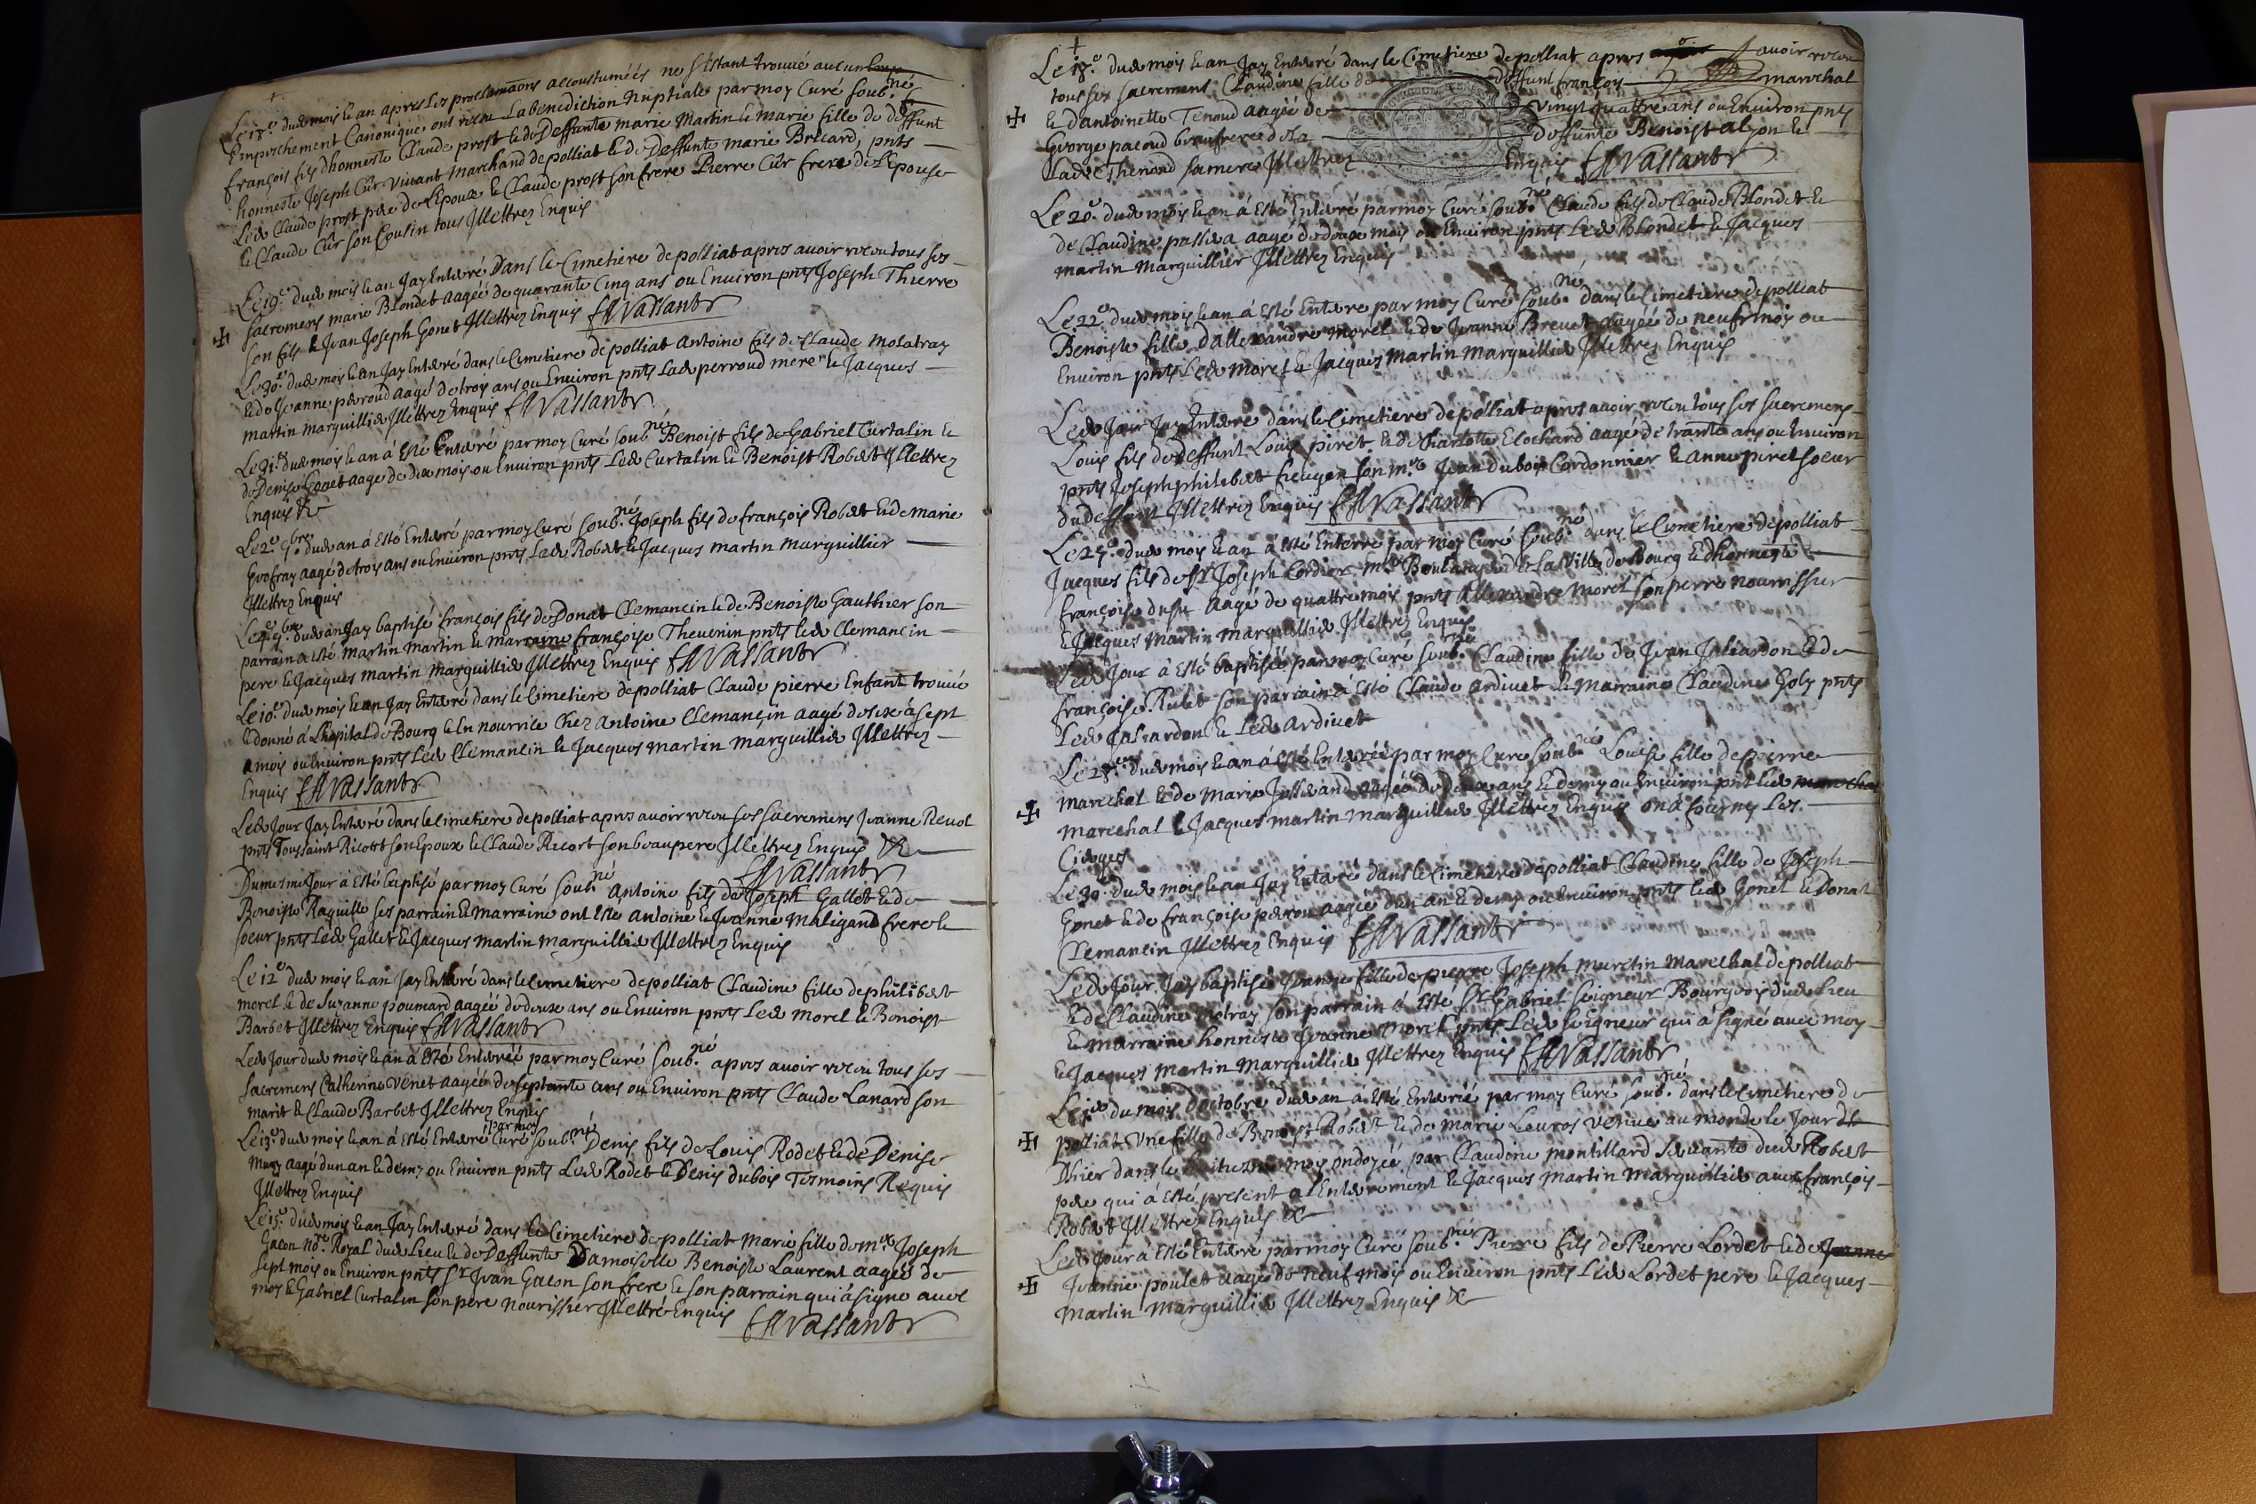 Le 18.e dud mois & an apres Les proclamaõns accoustuméés ne s'estant trouué aucun
Empeschement Canonique ont receu La benediction Nuptiale par moy Curé soub.né
françois fils d'honneste Claude prost & de Deffunte marie Martin & marie fille de deffunt
honneste Joseph Cur viuant Marchand de polliat & de Deffunte marie Brecard, pnts
Led Claude prost pere de L'Epoux & Claude prost son frere Pierre Cur frere de L'Epouse
& Claude Cur son Cousin tous Illettrez Enquis
Le 19.e dud mois & an Jay Enterré Dans le Cimetiere de polliat apres auoir receu tous ses
sacremens marie Blondet aagéé de quarante Cinq ans ou Enuiron pnts Joseph Thierre
son fils & Jean Joseph Gonet Illettrez Enquis
Le 30.e dud mois & an Jay Enterré dans le Cimetiere de polliat Antoine fils de Claude molatray
& de Jeanne perroud aagé de troys ans ou Enuiron pnts Lad perroud mere & Jacques
martin marguillier Illettrez Enquis
Le 31.e dud mois & an à Esté Enterré par moy Curé soub.né Benoist fils de Gabriel Curtalin &
de Denise aage de dix mois ou Enuiron pnts Led Curtalin & Benoist Robert Illettrez
Enquis &c
Le 2.e 7.bre dud an á Esté Enterré par moy Curé soub.né Joseph fils de françois Robert & de marie
Geofray aagé de trois ans ou Enuiron pnts Led Robert & Jacques martin marguillier
Illettrez Enquis
Le 4.e 7.bre dud an Jay baptisé françois fils de Donat Clemancin & de Benoiste Gauthier son
parrain a esté martin Martin & marraine françoise Theuenin pnts led Clemancin
pere & Jacques martin marguillier Illettrez Enquis
Le 10.e dud mois & an Jay Enterré dans le Cimetiere de polliat Claude pierre Enfant trouué
& donné á L'hopital de Bourg & En nourrice Chez Antoine Clemançin aagé de six à sept
mois ou Enuiron pnts Led Clemancin & Jacques martin marguillier Illettrez
Enquis
Led Jour Jay Enterré dans le Cimetiere de polliat apres auoir receu ses sacremens Jeanne
pnts Toussaint Ricort son Epoux & Claude Ricort son beaupere Illettrez Enquis &c
Du mesme Jour à Esté baptisé par moy Curé soub.né Antoine fils de Joseph Gallet & de
Benoiste Raquille ses parrain & marraine ont Esté Antoine & Jeanne Maligand frere &
soeur pnts Led Gallet & Jacques martin marguillier Illettrez Enquis
Le 12.e dud mois & an Jay Enterré dans le Cimetiere de polliat Claudine fille de philibert
morel & de Suzanne poumard aagéé de deux ans ou Enuiron pnts Led Morel & Benoist
Barbet Illettrez Enquis
Led Jour dud mois & an á Esté Enterréé par moy Curé soub.né apres auoir receu tous ses
sacremens Catherine Venet aagéé de septante ans ou Enuiron pnts Claude Lanard son
marit & Claude Barbet Illettrez Enquis
Le 13.e dud mois & an á Esté Enterré par moy Curé soub.né Denis fils de Louis Rodet & de Denise
aagé dun an & demy ou Enuiron pnts Led Rodet & Denis Dubois Tesmoins Requis
Illettrez Enquis
Le 15.e dud mois & an Jay Enterré dans le Cimetiere de polliat Marie fille de m.e Joseph
Gacon No.re Royal dud Lieu & de Deffunte Damoiselle Benoiste Laurent aagéé de
sept mois ou Enuiron pnts Sr Jean Gacon son frere & son parrain qui à signe auec
moy & Gabriel Curtalin son pere nourrissier Illettre Enquis
Le 18.e dud mois & an Jay Enterré dans le Cimetiere de polliat apres auoir receu
tous ses sacrement Claudine fille de deffunt françois marechal
& dantoinette Tenoud aagéé de vingt quattre ans ou Enuiron pnts
George pacoud beaufrere de La deffunte Benoist & 
Lade Thenoud samere Illettrez Enquis
Le 20.e dud mois & an á Esté Enterré par moy Curé soub.né Claude fils de Claude Blondet &
de Claudine aagé de douze mois ou Enuiron pnts Led Blondet & Jacques
martin Marguillier Illettrez Enquis
Le 22.e dud mois & an à Esté Enterre par moy Curé soub.né dans le Cimetiere de polliat
Benoiste fille d'Allexandre Morel & de Jeanne Breuet aagéé de neuf moys ou
Enuiron pnts Led Morel & Jacques Martin Marguillier Illettrez Enquis
Led Jour Jay Enterre dans le Cimetiere de polliat apres auoir receu tous ses sacremens
Louis fils de deffunt Louis piret & de Charlotte Clochard aagé de trante ans ou Enuiron
pnts Joseph philibert son m.re Jean Dubois Cordonnier & anne piret soeur
du deffunt Illettrez Enquis
Le 25.e dud mois & an à Esté Enterré par moy Curé soub.né dans le Cimetiere de polliat
Jacques fils de Sr Joseph Cordier m.re Boulanger de La Ville de Bourg & d'honneste
françoise aagé de quattre mois pnts Allexandre Morel son perre nourrissier
& Jacques Martin Marguillier Illettrez Enquis
Led Jour à Esté baptisée par moy Curé soub.né Claudine fille de Jean Jaliardon & de
françoise Rulet son parrain à Esté Claude Ardiuet & Marraine Claudine Goly pnts
Led Jaliardon & Led Ardiuet
Le 28.e dud mois & an á Esté Enterréé par moy Cure soub.né Louise fille de pierre
marechal & de Marie aagéé de deux ans & demy ou Enuiron pnt led
marechal & Jacques martin Marguillier Illettrez Enquis on á fourny Les
Cierges
Le 30.e dud mois & an Jay Enterré dans le Cimetiere de polliat Claudine fille de Joseph
Gonet & de françoise aagéé dun an & demy ou enuiron pnts Led Gonet & Donat
Clemancin Illettrez Enquis
Led Jour Jay baptisé Jeanne fille de pierre Joseph Martin Marechal de polliat
& de Claudine son parrain à Esté Sr Gabriel Seigneur Bourgeois dud Lieu
& marraine honneste Jeanne Morel pnts Led Seigneur qui á signé auec moy
& Jacques Martin Marguillier Illettrez Enquis
Le 1.er du mois d'octobre dud an à Esté Enterréé par moy Curé soub.né dans le Cimetiere de
polliat Vne fille de Benoist Robert & de marie venue au monde le Jour
D'hier ondoyéé par Claudine montillard seruante dud Robert
pere qui à Esté present a l'Enterrement & Jacques Martin Marguillier auec françois
Robert Illettrez Enquis &c
Led Jour á Esté Enterre par moy Curé soub.né Pierre fils de Pierre Lordet & de
Jeanne poulet aagé de neuf mois ou Enuiron pnts Led Lordet pere & Jacques
Martin Marguillier Illettrez Enquis &c